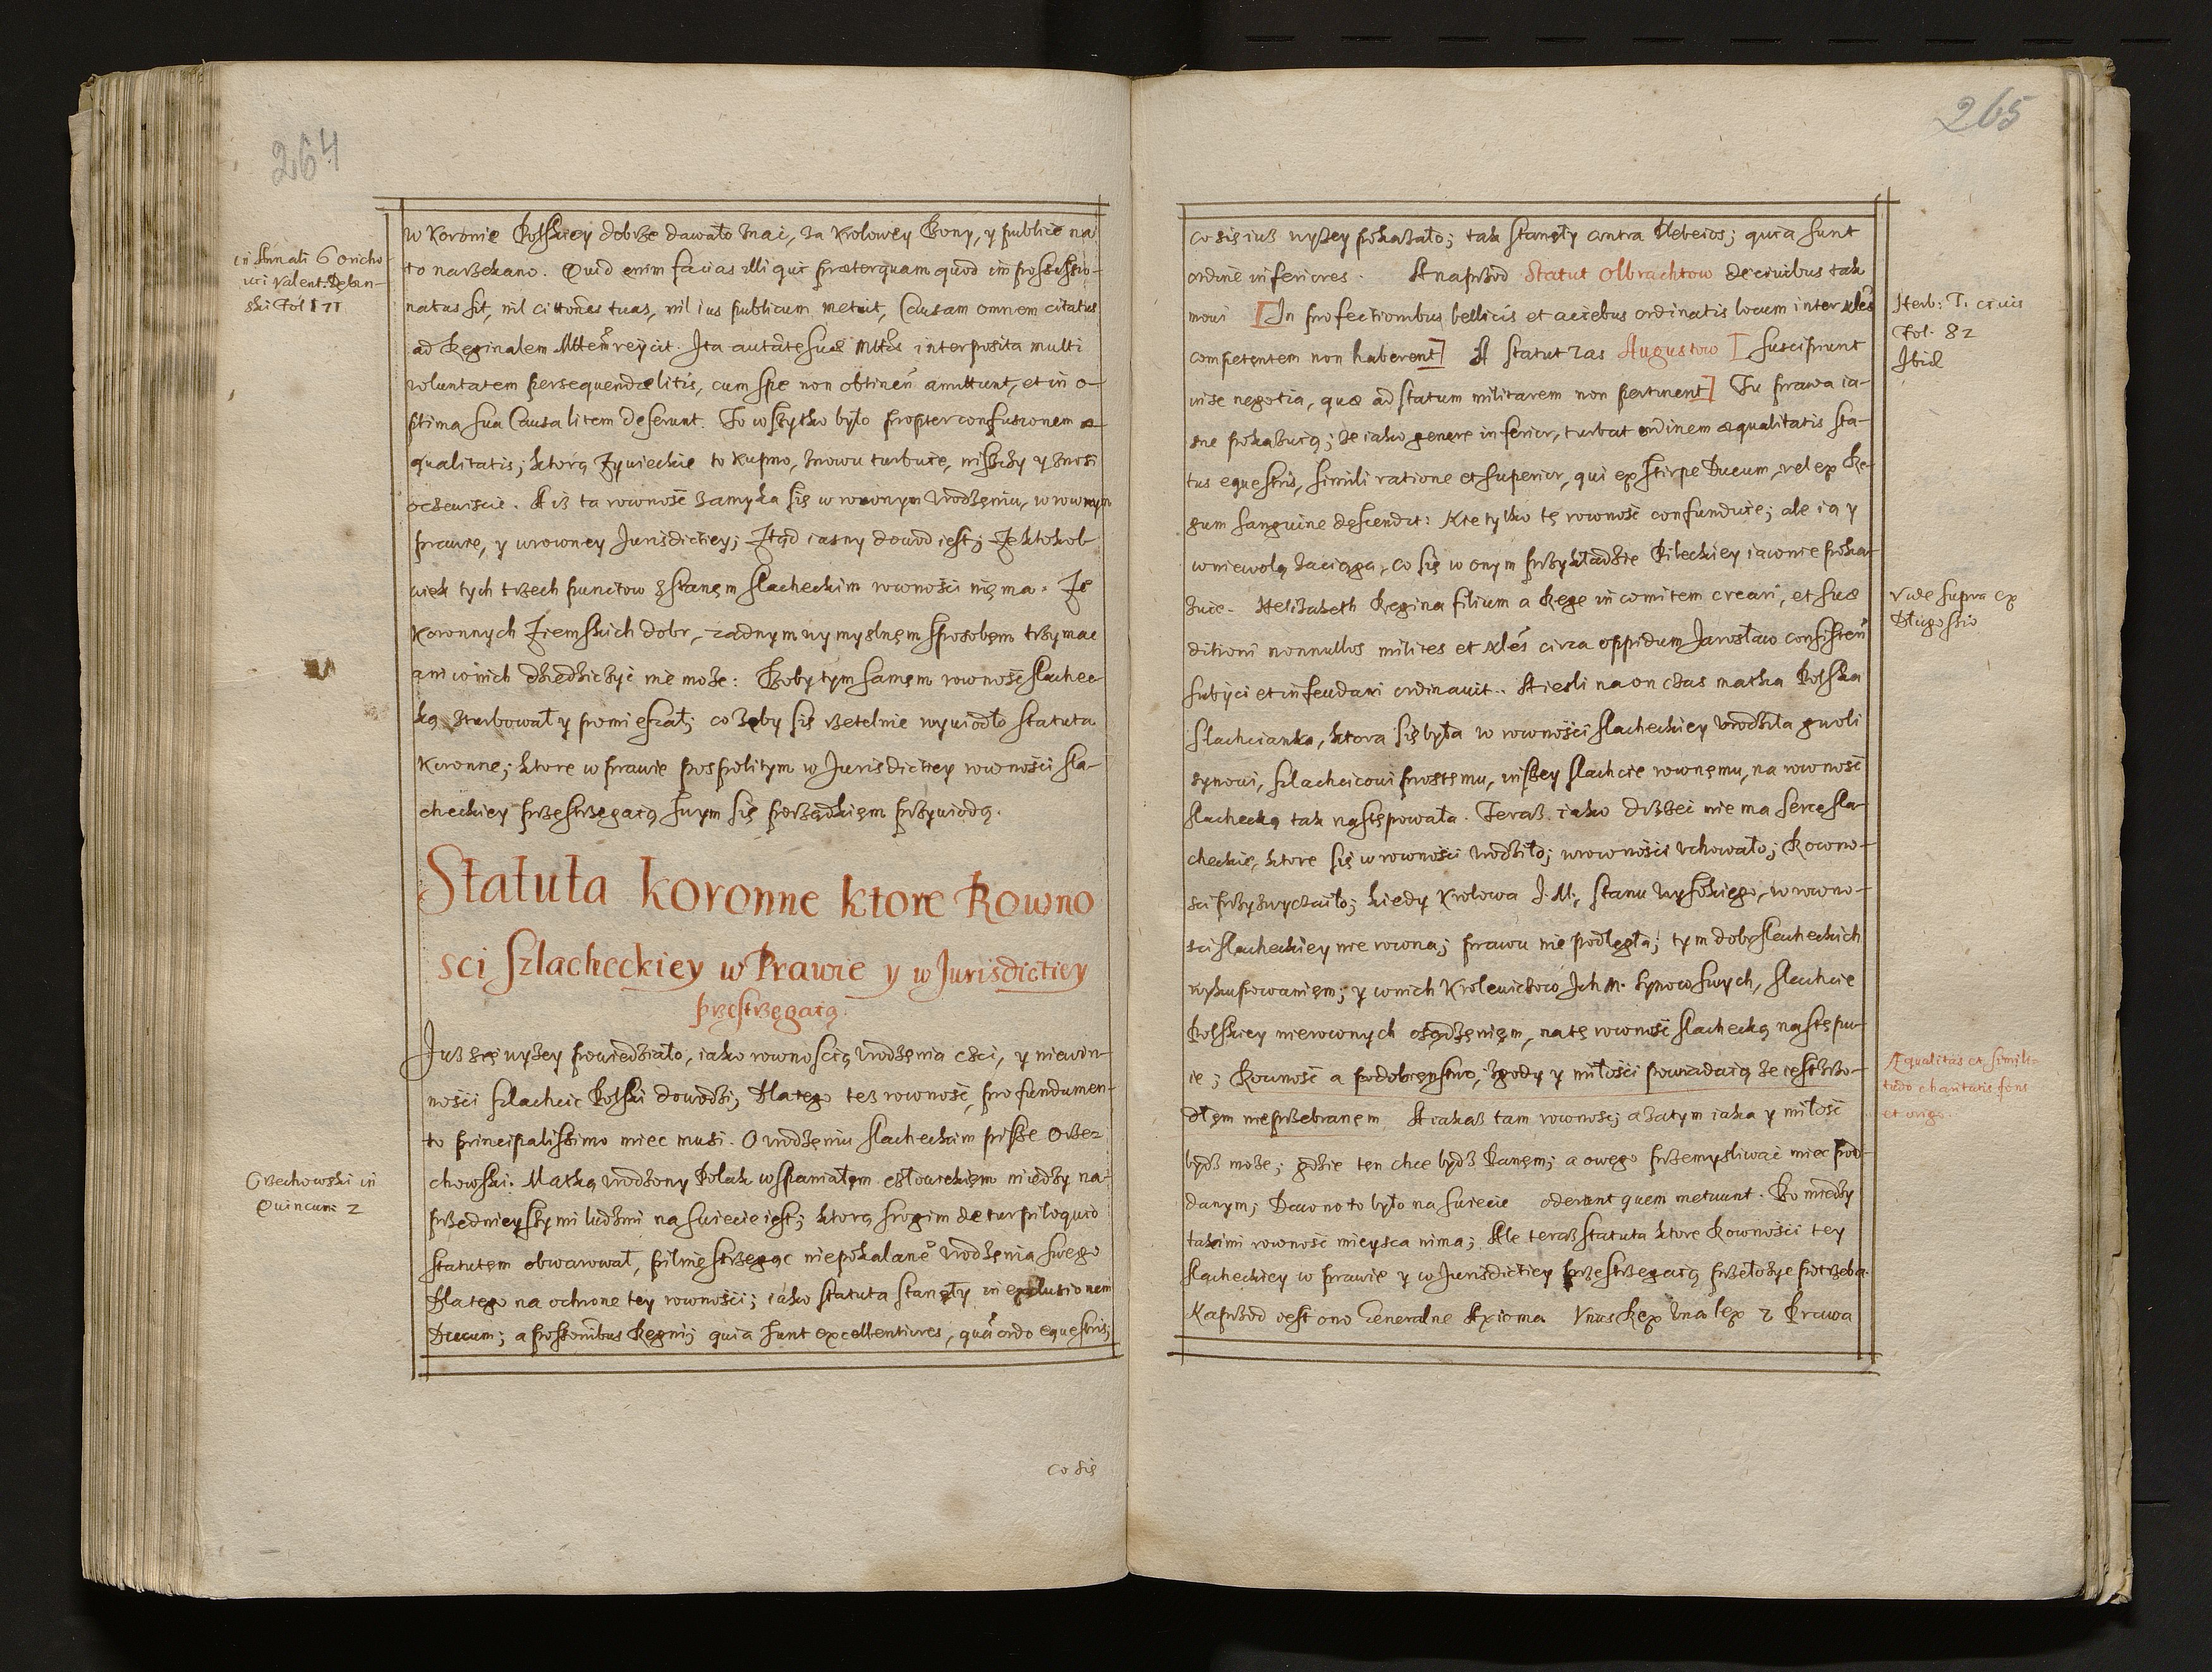 264
in Annali 6 Oricho-
vci Valent. Debin-
ski Fol 171
w Koronie Polskiey dobrze dawało znać, za Krolowey Bony, y publice na
to narzekano. Quid enim facias illi qui præterquam quod in possessio-
natus sit, nil citiones tuas, nil ius publicum metuit, Causam omnem citatus
ad Reginalem Mttem reijcit. Ita autãte suæ Mttis interposita multi
voluntatem persequendæ litis, cum spe non obtinen amittunt, et in o-
ptima sua Causa litem deserunt. To wszytko było propter confusionem æ-
qualitatis; ktorą Zywieckie to kupno, znowu turbuie, niszczy y znosi
oczewiscie. A iż ta rowność zamyka się w rownym vrodzęniu, w rownym
prawie, y w rowney Jurisdictiey; Ztąd iasny dowod iest; Ze ktokol-
wiek tych trzech punctow z stanęm slacheckim rowności nię ma. Ze
Koronnych Ziemskich dobr, zadnym wymyslnęm sposobęm trzymać
ani w nich dziedziczyć nie może: Boby tym samęm rowność slachec-
ką zturbował y pomieszał; co żeby się rzetelnie wywiodło statuta
Koronne; ktore w prawie pospolitym w Jurisdictiey rowności sla-
checkiey przestrzegaią swym się porządkięm przywiodą.
Statuta koronne ktore Rowno
sci Szlacheckiey w Prawie y w Jurisdictiey
przestrzęgaią.
Juz się wyżey powiedziało, iako rownoscią vrodzęnia czci, y niewin-
ności szlachcic Polski dowodzi; Dlatego też rowność, pro fundamen-
to principalissimo miec musi. O vrodzęniu slacheckim pisze Orze-
chowski. Matką vrodzony Polak wspaniałęm człowiekięm między na-
przednieyszymi ludzmi na swiecie iest; ktorą srogim de turpiloquio
Orzechowski in
Quincun: 2
statutęm obwarował, pilnię strzegąc niepokalane vrodzęnia swego
Dlatego na ochronę tey rowności; iako statuta stanęły in exclusionem
Ducum; a postonibus Regni; quia sunt excellentiores, quã ordo equestris;
co się
265
co się iuż wyżey pokazało; tak stanęły contra Plebeios; quia sunt
ordine inferiores. A naprzod Statut Olbrachtow de civibus tak
mowi [In profectionibus bellicis et aciebus ordinatis locum inter Nles
competentem non haberent] A statut zas Augustow [Suscipiunt
Herb: T. civis
Fol. 82
Ibid
vise negotia, quæ ad statum militarem non pertinent] Tu prawa ia-
sne pokazuią; że iako genere inferior, turbat ordinem æqualitatis sta-
tus equestris, simili ratione et superior, qui ex stirpe Ducum, vel ex Re-
gum sanguine dęscendit: Nie tylko tę rowność confunduie; ale ią y
w niewolą zaciąga, co się w onym przykładzie Pileckiey iawnie poka-
zuie. Helizabeth Regina filium a Rege in comitem creari, et suæ
ditioni nonnullos milites et Nles circa oppidum Jarosław consisten
Vide supra ex
Długossio
subijci et infeudari ordinavit.. A iesli na on czas matka Polska
slachcianka, ktora się była w rowności slacheckiey vrodziła gwoli
synowi, szlachcicowi prostemu, inszey slachcie rownęmu, na rowność
slachecką tak następowała. Teraz iako drżeć nie ma serce sla-
checkie, ktore się w rowności vrodziło; w rowności vchowało; Rowno-
sci przyzwyczaiło; kiedy Krolowa J. M; stanu wysokięgo, w rowno-
sci slacheckiey nie rowna; prawu nie podlęgła; tym dobr slacheckich
wykupowanięm; y w nich Krolewicow Ich M. synow swych, slachcie
Polskiey nierownych osądzęnięm, na tę rowność slachecką następu-
ie; Rowność a podobięnstwo, zgody y miłości powiadaią że iest zrzo-
dłęm nieprzebranęm A iakaż tam rowność; a zatym iaka y miłość
Æqualitas et simili-
tudo charitatis fons
et origo.
bydź może; gdzie ten chce bydź Panęm; a owego przemysliwać miec pod-
danym; Dawno to było na swiecie oderunt quem metuunt. Bo między
takimi rowność mieysca nima; Ale teraz statuta ktore Rowności tey
slacheckiey w prawie y w Jurisdictiey przestrzegaią przełożyć potrzeba.
Naprzod iest ono Generalne Axioma Vnus Rex Vna lex z Prawa